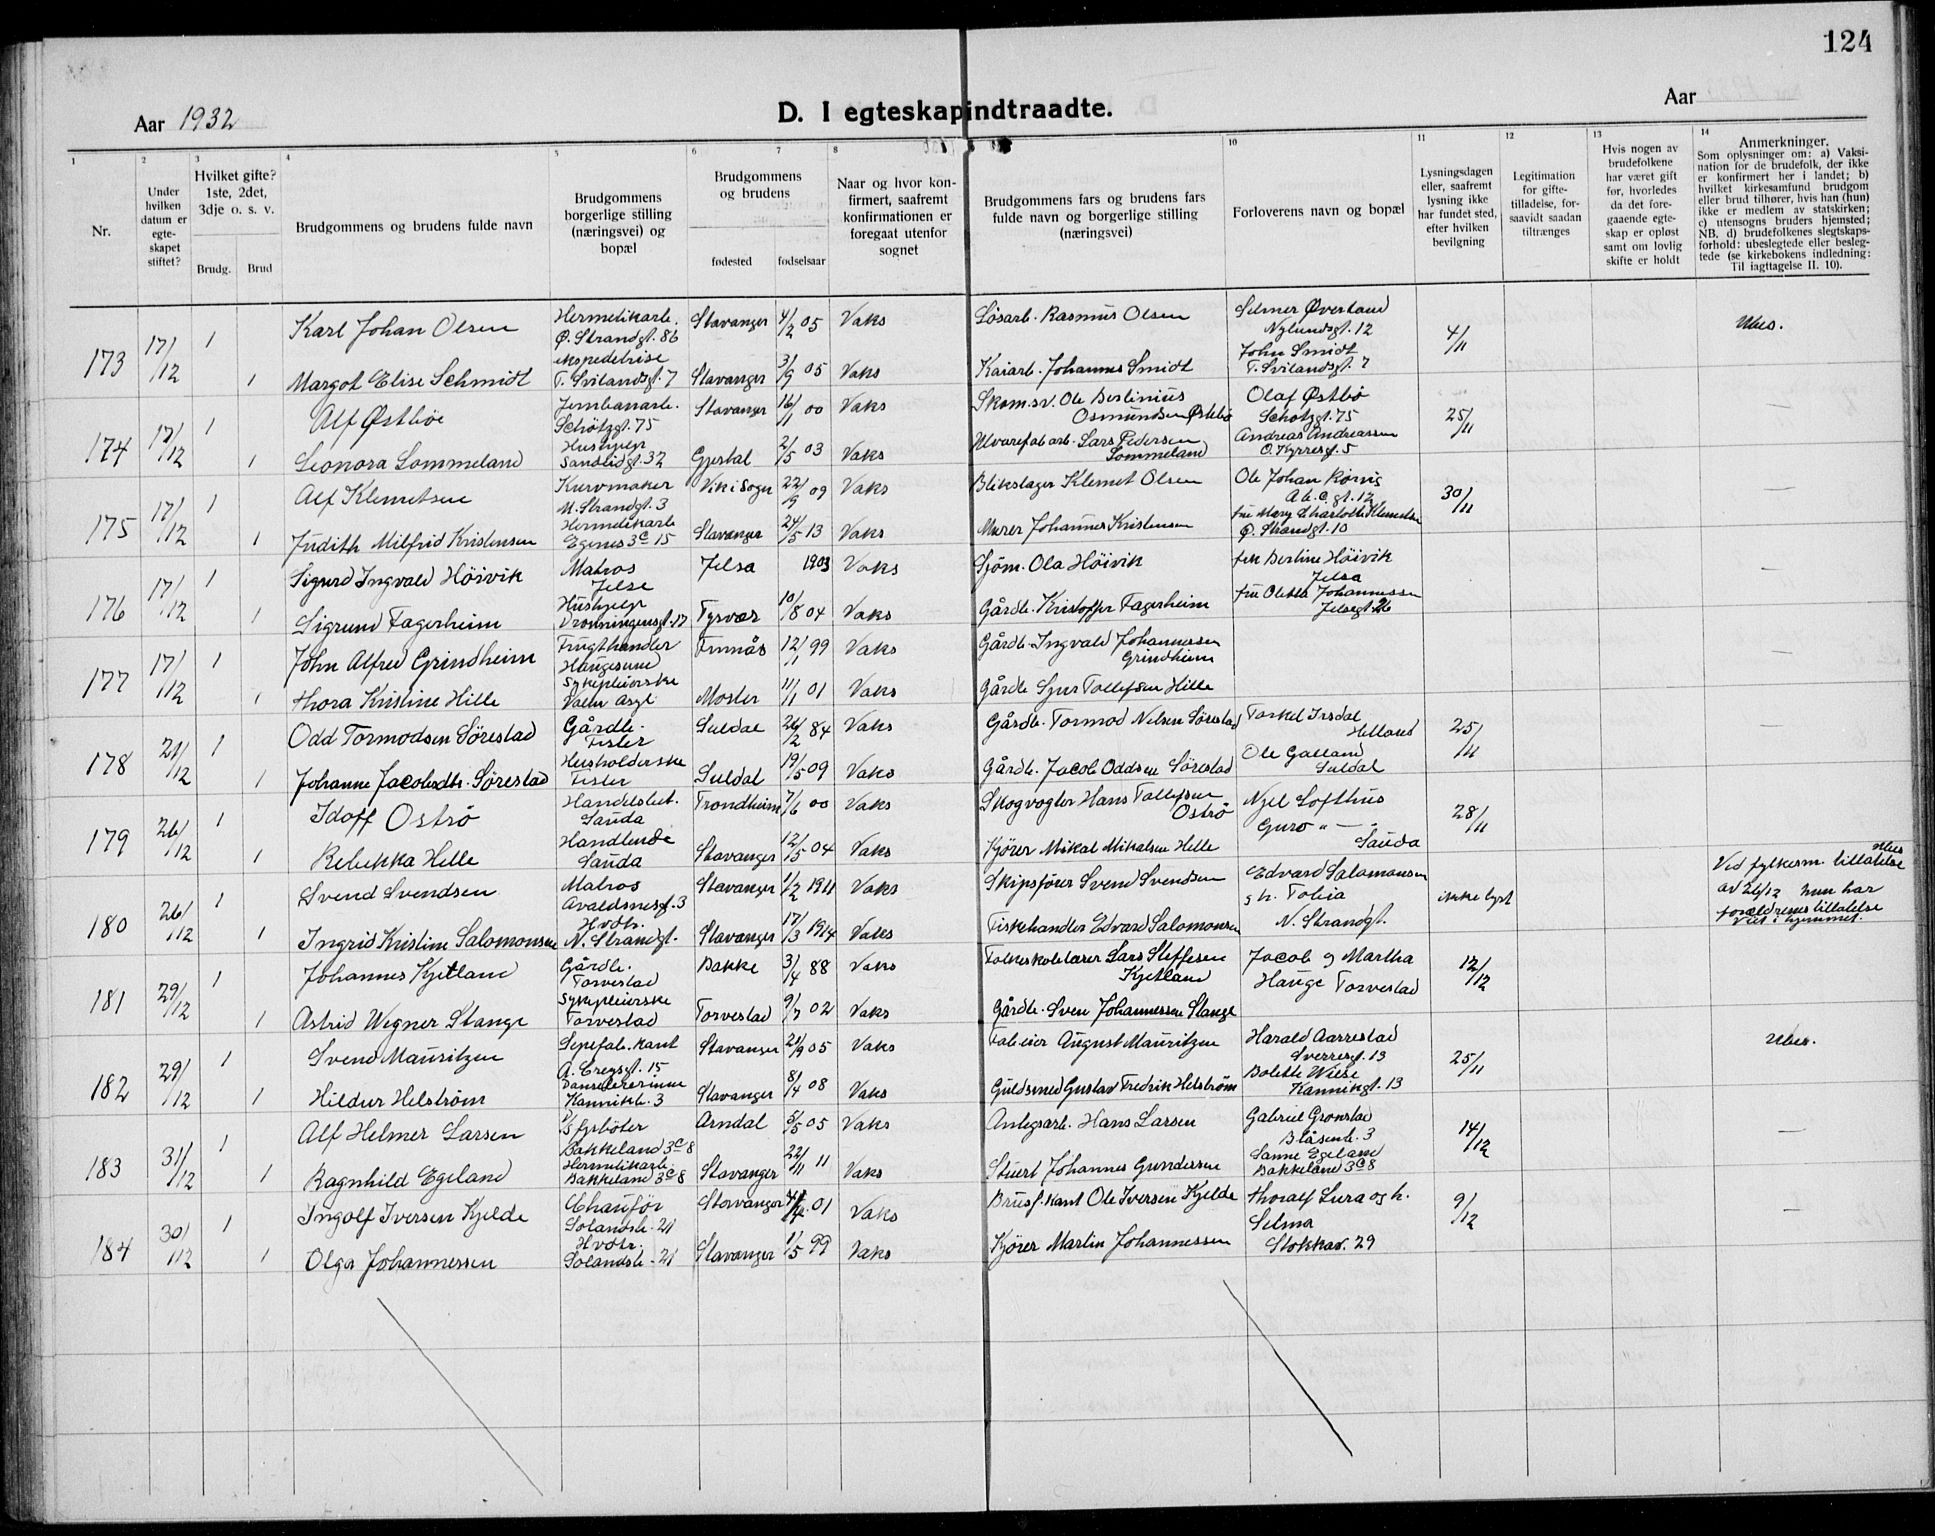 124
Aar 1932
D. I egteskapindtraadte.
Aar
1 2 3 4 5 6 7 8 10 11 12 13 14
Nr.
Under hvilken datum er egte-skapet stiftet?
Hvilket gifte? 1ste, 2det, 3dje o. s. v.
Brudg. Brud
Brudgommens og brudens fulde navn
Brudgommens borgerlige stilling (næringsvei) og bopæl
Brudgommens og brudens
fødested fødselsaar
Naar og hvor kon-firmert, saafremt konfirmationen er foregaat utenfor sognet
Brudgommens fars og brudens fars fulde navn og borgerlige stilling (næringsvei)
Forloverens navn og bopæl
Lysningsdagen eller, saafremt lysning ikke har fundet sted, efter hvilken bevilgning
Legitimation for gifte-tilladelse, for-saavidt saadan tiltrænges
Hvis nogen av brudefolkene har været gift før, hvorledes da det fore-gaaende egte-skap er opløst samt om lovlig skifte er holdt
Anmerkninger.
Som oplysninger om: a) Vaksi-nation for de brudefolk, der ikke er konfirmert her i landet; b) hvilket kirkesamfund brudgom eller brud tilhører, hvis han (hun) ikke er medlem av statskirken; c) utensogns bruders hjemsted; NB. d) brudefolkenes slegtskaps-forhold: ubeslegtede eller besleg-tede (se kirkebokens indledning: Til iagttagelse II. 10).
173 17/12 1 Karl Johan Olsen Hermetikarb. Ø. Strandgt. 86 Stavanger 4/2 05 Vaks Løsarb. Rasmus Olsen Selmer Øverland Nylundsgt. 12 4/11 Ubes.
1 Margot Elise Schmidt ekspeditrise T. Svilandsgt. 7 Stavanger 3/9 05 Vaks Kaiarb. Johannes Smidt John Smidt T. Svilandsgt. 7
174 17/12 1 Alf Østbøe Jernbanarb. Schøtzgt. 75 Stavanger 16/1 00 Vaks Skom.sv. Ole Berlinius Osmundsen Østebø Olaf Østbø Schøtzgt. 75 25/11 —
1 Leonora Lommeland Hushjelp Sandlidgt. 32 Gjestal 2/5 03 Vaks Ulvarefab.arb. Lars Pedersen Lommeland Andreas Andreassen O. Kyrresgt. 5
175 17/12 1 Alf Klemetsen Kurvmaker N. Strandgt. 3 Vik i Sogn 22/9 09 Vaks Blikslager Klemet Olsen Ole Johan Rørvig A.b.c. gt. 12 30/11 —
1 Judith Milfrid Kristensen Hermetikarb Egenes 3c 15 Stavanger 24/5 13 Vaks Murer Johannes Kristensen fru Mary Charlotte Klemetsen Ø. Strandgt. 10
176 17/12 1 Sigurd Ingvald Höivik Matros Jelse Jelsa 1903 Vaks Sjöm. Ola Höivik frk Berline Höivik Jelsa —
1 Sigrund Fagerheim Hushjelp Dronningensgt. 17 Tyrvær 10/8 04 Vaks Gårdb. Kristoffer Fagerheim fru Oletta Johannessen Jelsegt. 26
177 17/12 1 John Alfred Grindheim Frugthandler Haugesund Finnås 12/11 99 Vaks Gårdb. Ingvald Johannessen Grindheim —
1 Thora Kristine Hille Sykepleierske Moster 11/1 01 Vaks Gårdb. Sjur Tollefsen Hille
178 21/12 1 Odd Tormodsen Sörestad Gårdb. Fister Suldal 26/2 84 Vaks Gårdb. Tormod Nelsen Sörestad Torkel Irsdal Helland 25/11 —
1 Johanne Jacobsdtr. Sörestad Husholderske Fister Suldal 19/5 09 Vaks Gårdb. Jacob Oddsen Sörestad Ole Galland Suldal
179 26/12 1 Idoff Osträ Handelsbet. Sauda Trondheim 7/6 00 Vaks Skogvogter Hans Tollefsen Oströ Njel Lofthus 28/11
1 Rebekka Helle Handlende Sauda Stavanger 12/5 04 Vaks Kjörer Mikal Mikalsen Helle Guro " — " Sauda
180 26/12 1 Svend Svendsen Matros Avaldsnesgt. 3 Stavanger 1/2 1911 Vaks Skipsfører Svend Svendsen Edvard Salomonsen ikke lyst Ubes Ved fylkesm. tillatelse av 26/12 hun har forældrenes tillatelse Viet i hjemmet.
1 Ingrid Kristine Salomonsen Hvdtr. N. Strandgt. Stavanger 17/3 1914 Vaks Fiskehandler Edvard Salomonsen N. Strandgt.
181 29/12 1 Johannes Kjetland Gårdb. Torvestad Bakke 3/4 88 Vaks Folkeskolelærer Lars Steffesen Kjetland Jacob og Martha Hauge Torvestad 12/12
1 Astrid Wegner Stange Sykepleierske Torvestad Torvestad 9/7 02 Vaks Gårdb. Sven Johannessen Stange
182 29/12 1 Svend Mauritzen Sepefab.kant A. Cregsgt. 15 Stavanger 21/9 05 Vaks Fab.eier August Mauritzen Harald Aarrestad Sverresgt. 13 25/11 Ubes.
1 Hildur Helström Danselererinne Kannikb. 3 Stavanger 8/4 08 Vaks Guldsmed Gustav Fredrik Helström Bolette Wiese Kannikgt. 13
183 31/12 1 Alf Helmer Larsen fyrböter Bakkeland 3c 8 Arndal 5/5 05 Vaks Anlegsarb. Hans Larsen Gabriel Gronstad Blåsenb. 3 14/12 —
1 Ragnhild Egeland Hermetikarb. Bakkeland 3c 8 Stavanger 22/11 11 Vaks Stuert Johannes Gundersen Sanne Egeland Bakkeland 3c 8
184 30/12 1 Ingolf Iversen Kjelde Chauför Solandsb. 21 Stavanger 01 Vaks Brusf.kant Ole Iversen Kjelde Thoralf Lura og h. Selma 9/12 —
1 Olga Johannessen Hvdtr. Solandsb. 21 Stavanger 1/5 99 Vaks Kjörer Martin Johannessen Stokkav. 29